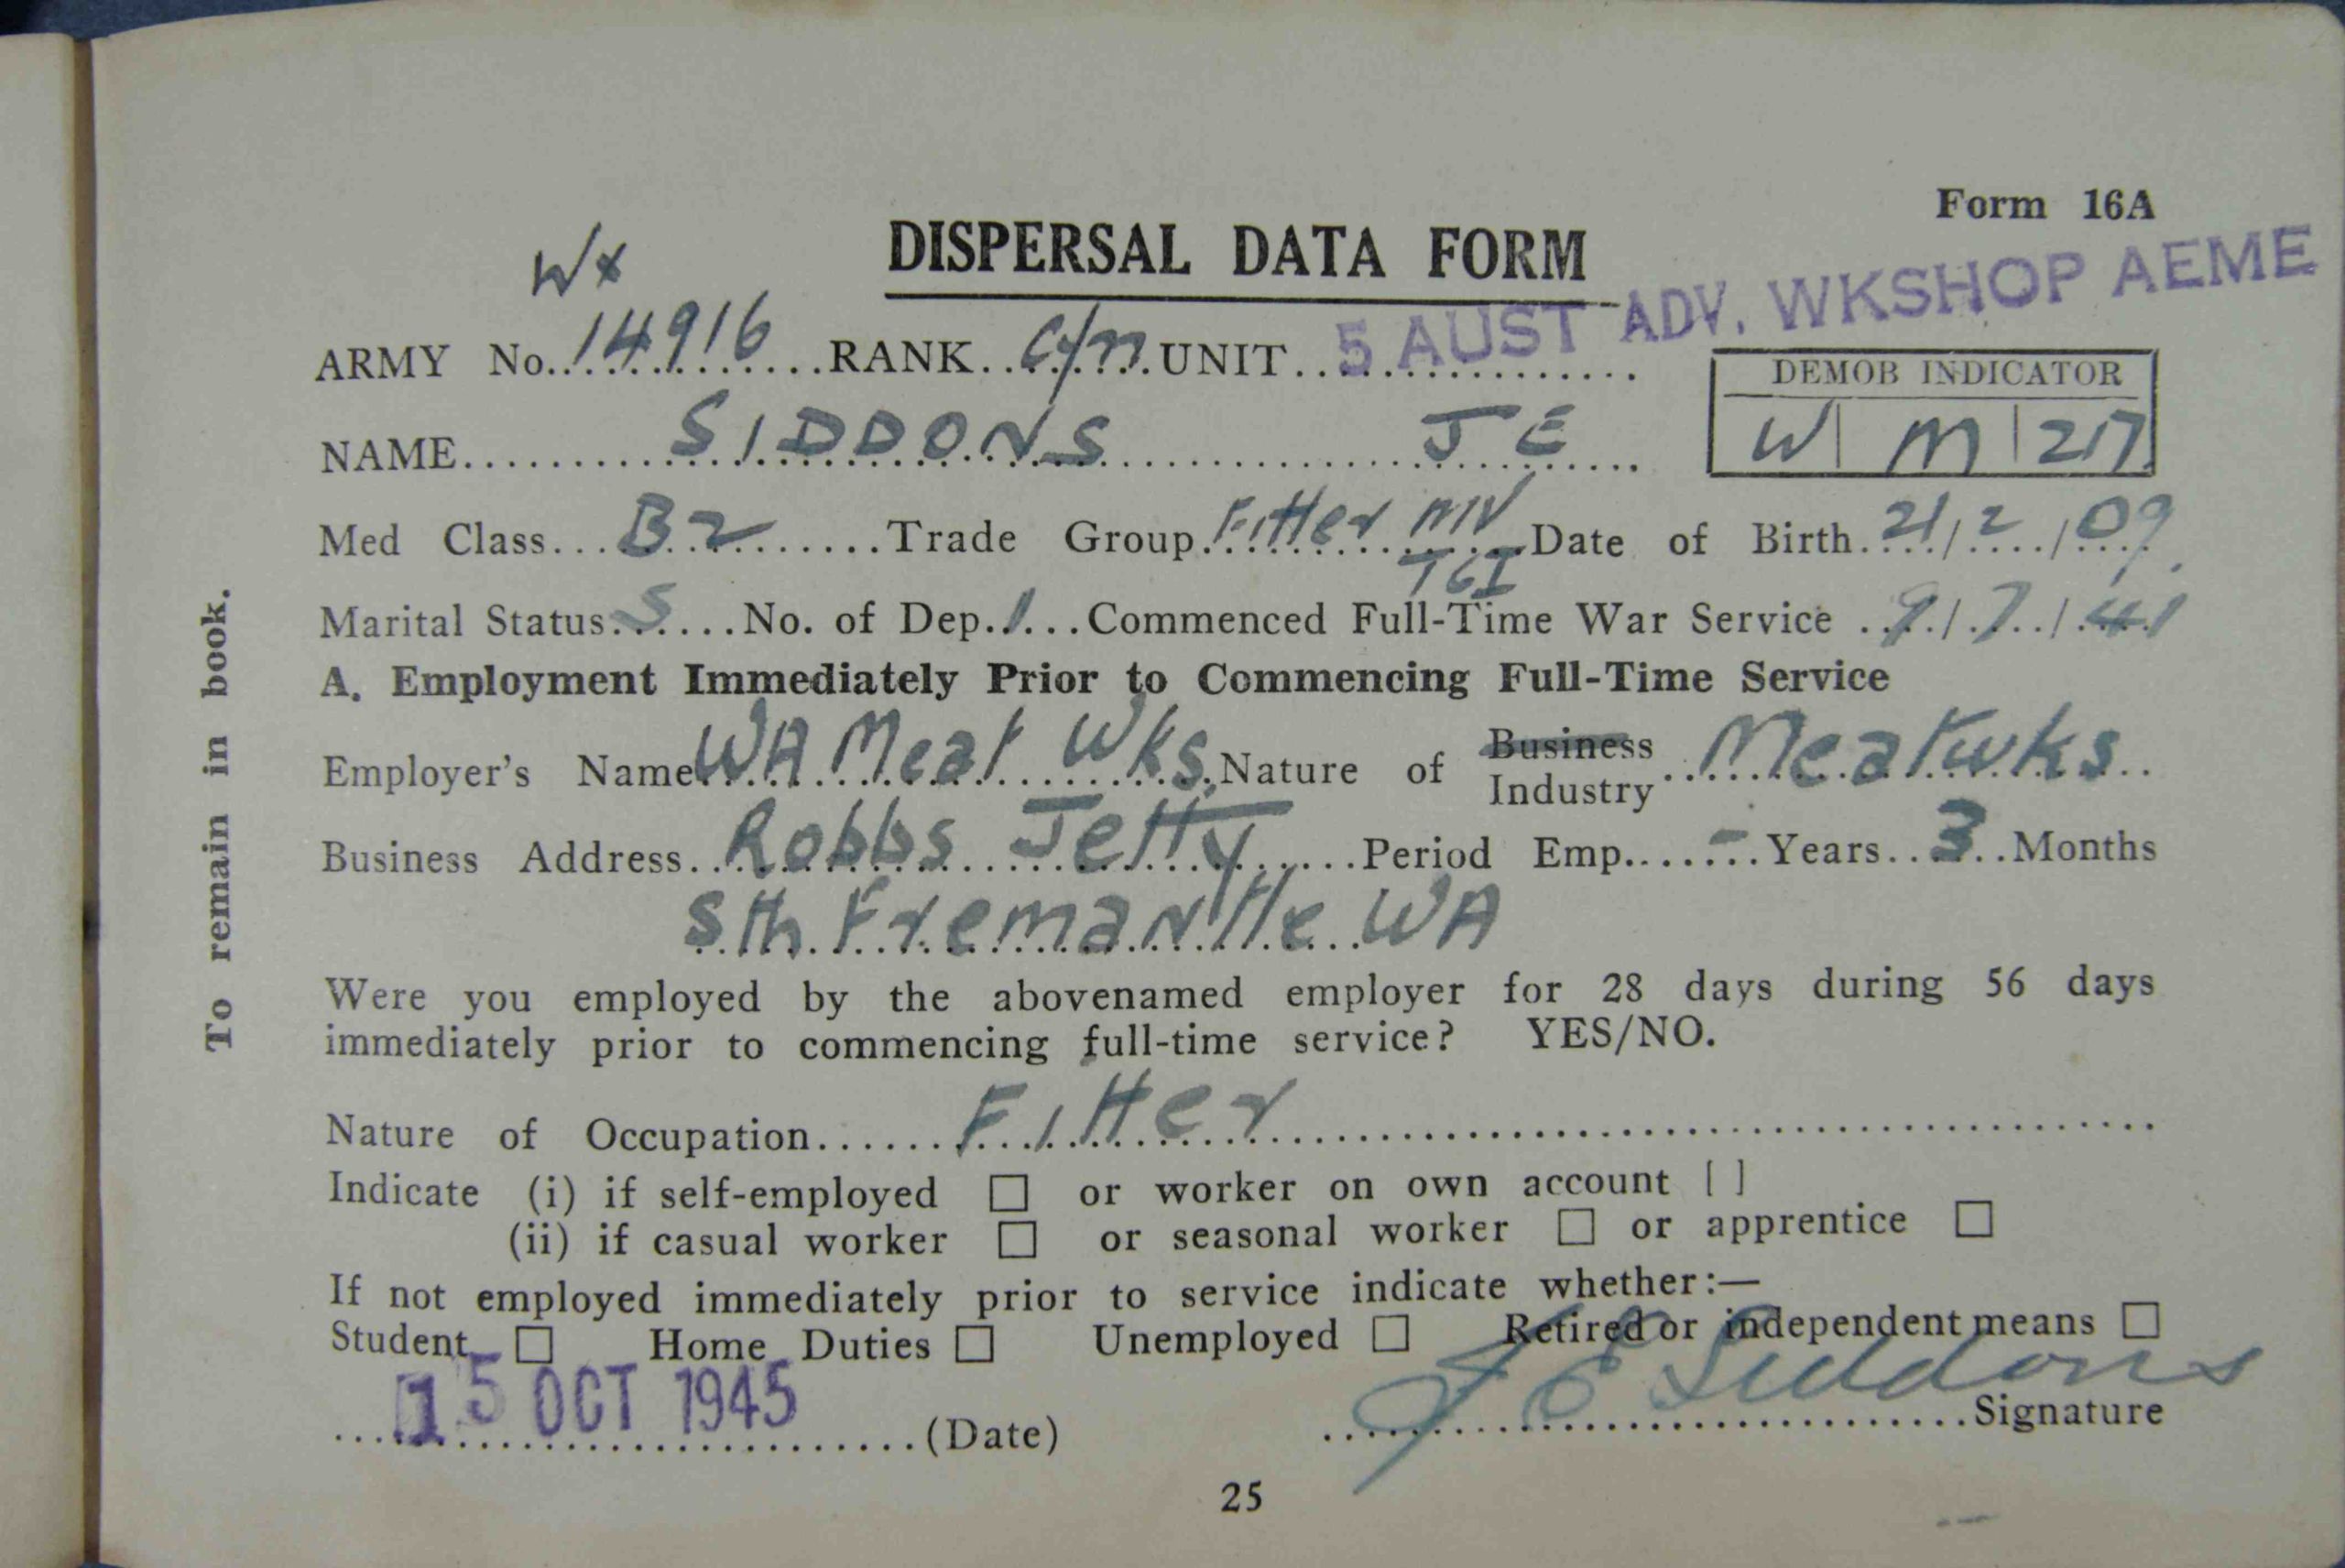 Form 16A
DISPERSAL DATA FORM
WX
ARMY No. 14916 RANK C/m UNIT 5 AUST ADV. WKSHOP AEME
DEMOB INDICATOR
NAME SIDDONS J E
W | M | 217
Med Class B2 Trade Group Fitter MV Date of Birth 21/2/09
TGI
Marital Status S No. of Dep. 1 Commenced Full-Time War Service 9/7/41
A. Employment Immediately Prior to Commencing Full-Time Service
Employer's Name WA Meat Wks. Nature of Business Industry Meatwks
Business Address Robbs Jetty Period Emp. - Years 3 Months
Sth Fremantle WA
Were you employed by the abovenamed employer for 28 days during 56 days
immediately prior to commencing full-time service? YES/NO.
Nature of Occupation Fitter
Indicate (i) if self-employed □ or worker on own account [ ]
(ii) if casual worker □ or seasonal worker □ or apprentice □
If not employed immediately prior to service indicate whether:—
Student □ Home Duties □ Unemployed □ Retired or independent means □
15 OCT 1945 (Date) J E Siddons Signature
25
To remain in book.